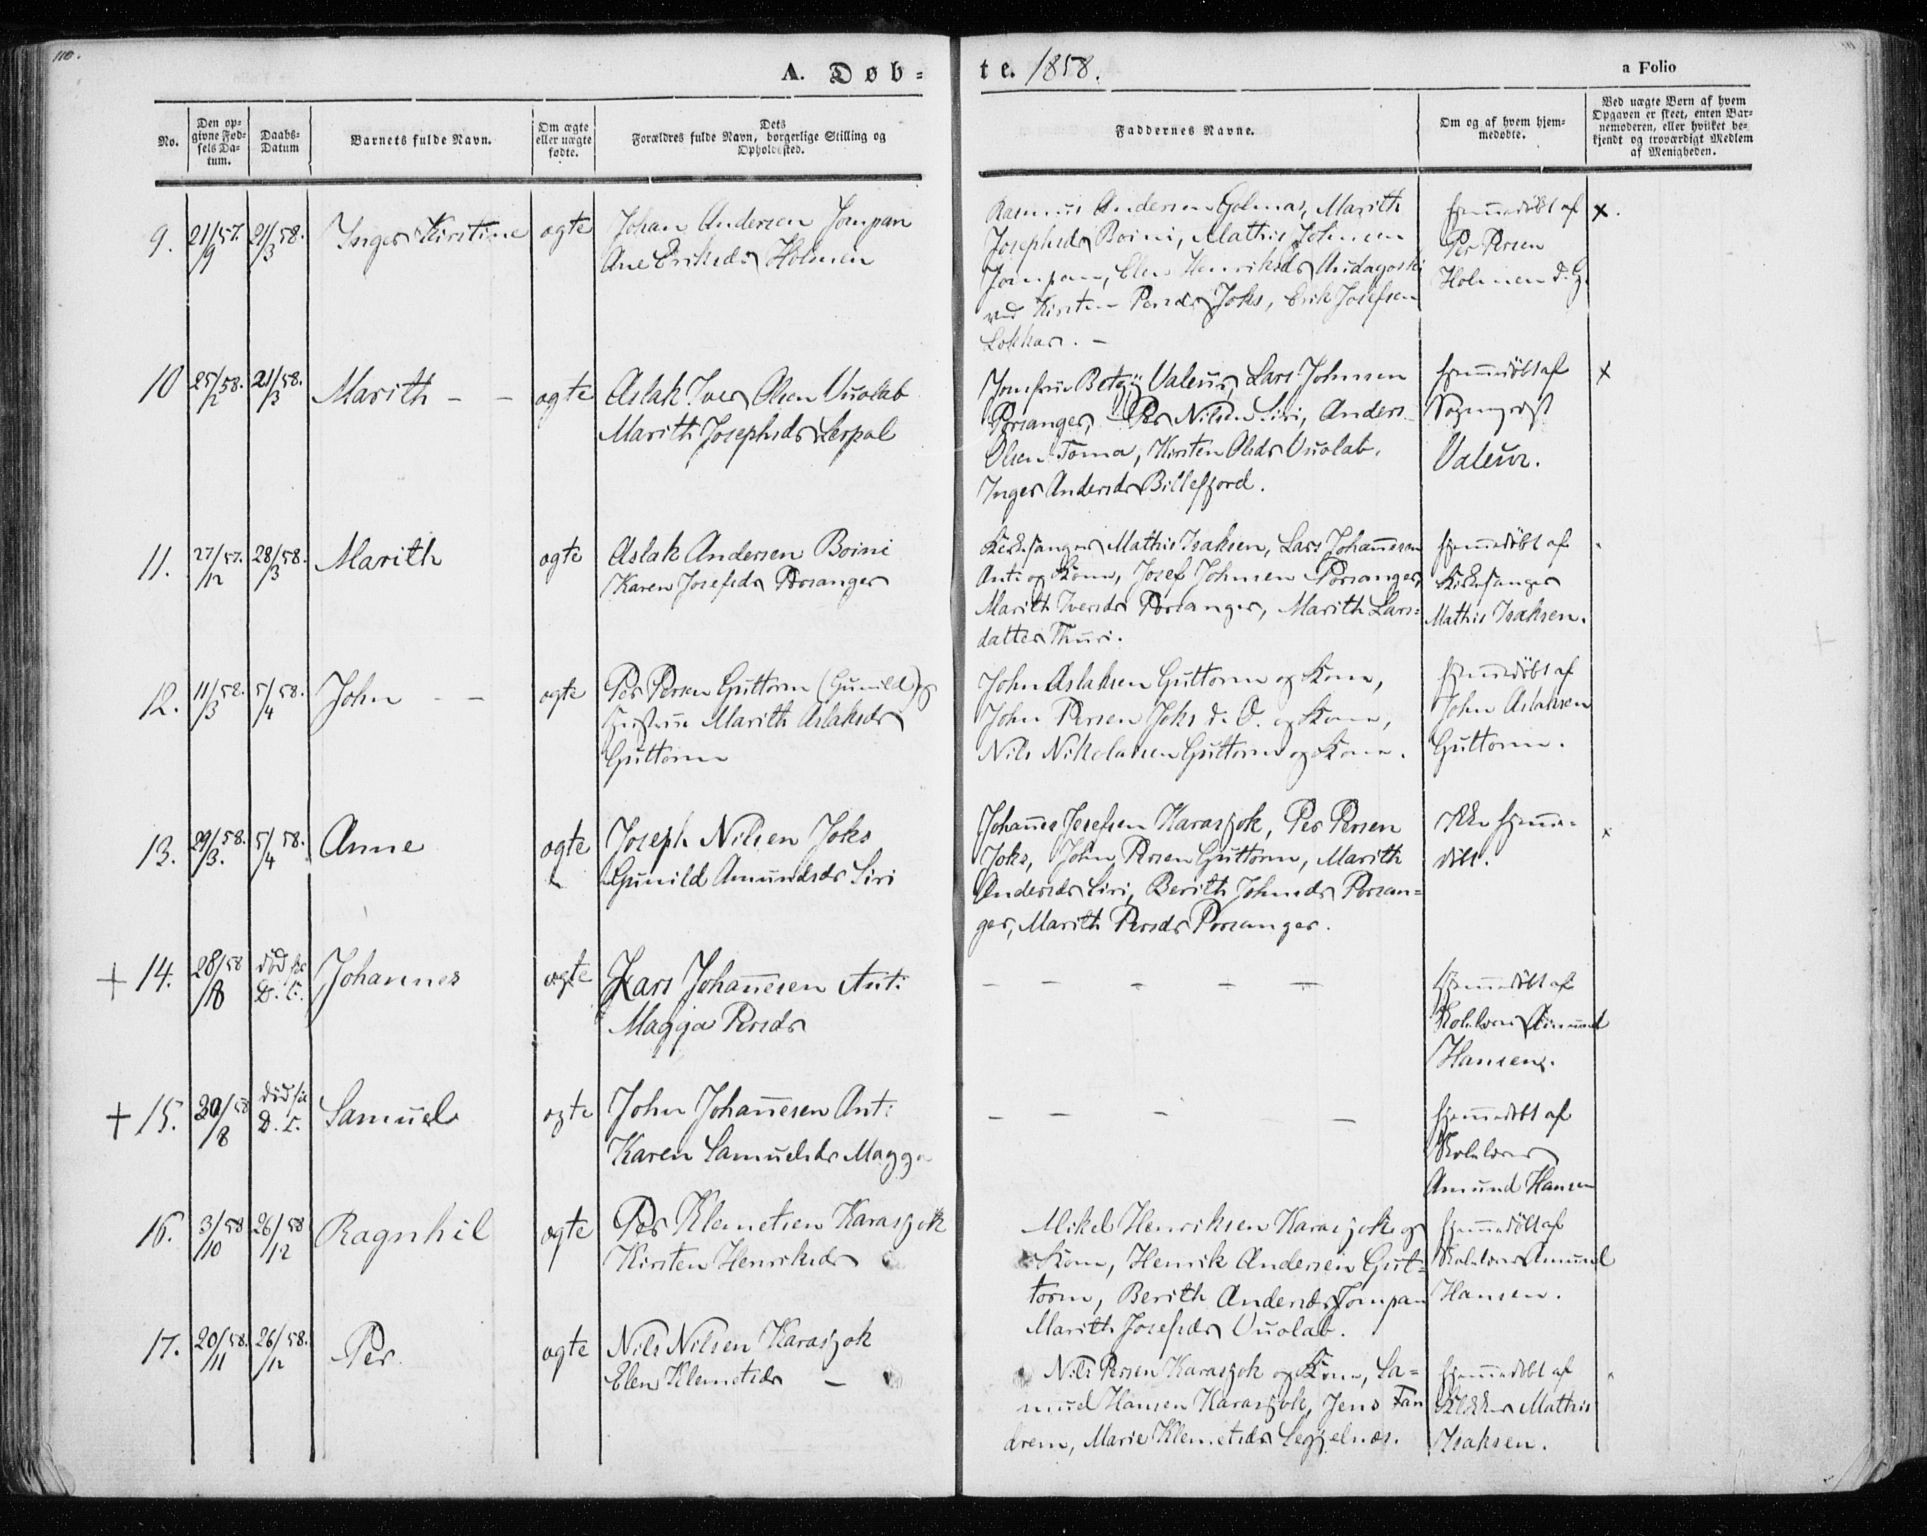 110.
A. Døb=
te. 1858.
a Folio
No.
Den op=
givne Fød=
sels Da=
tum.
Daabs=
Datum
Barnets fulde Navn.
Om ægte
eller uægte
fødte.
Dets
Forældres fulde Navn, borgerlige Stilling og
Opholdssted.
Faddernes Navne.
Om og af hvem hjem=
medøbte.
Ved uægte Børn af hvem
Opgaven er skeet, enten Bar=
nemoderen, eller hvilket be=
kjendt og troværdigt Medlem
af Menigheden.
9. 21/9 57. 21/3 58. Inger Kirstine ægte
Johan Andersen Jompan
Ane Eriksdr Holmen
Rasmus Andersen Golmas, Marith
Josephsdr Boini, Mathis Johnsen
Jompan, Elen Henriksdr Audagoski
Kirsten Persdr Joks, Erik Josefsen
Lokkar. –
hjemmedöbt af
Per Persen
Holmen d. Y.
x.
10 25/12 58. 21/3 58. Marith – – ægte
Aslak Iver Olsen Vuolab
Marith Josephsdr Lerpal
Jomfrue Betzy Valeur, Lars Johnsen
Porsanger, Per Nilsen Siri, Anders
Olsen Toma, Kirsten Olsdr Vuolab,
Inger Andersdr Billefjord.
hjemmedöbt af
Sogneprest
Valeur.
x
11. 27/12 57. 28/3 58. Marith ægte
Aslak Andersen Boini
Karen Josefsdr Porsanger
Kirkesanger Mathis Isaksen, Lars Johannesen
Anti og Kone, Josef Johnsen Porsanger,
Marith Iversdr Porsanger, Marith Lars=
datter Thuri.
hjemmedöbt af
Kirkesanger
Mathis Isaksen.
12. 11/3 58. 5/4 58. John – – ægte
Per Persen Guttorm (Gunild) og
Hustrue Marith Aslaksdr
Guttorm
John Aslaksen Guttorm og Kone,
John Persen Joks d. O. og Kone,
Nils Nikolaisen Guttorm og Kone.
hjemmedöbt af
John Aslaksen
Guttorm.
13. 29/3. 58. 5/4 58. Anne ægte
Joseph Nilsen Joks
Gunild Amundsdr Siri
Johannes Josefsen Karasjok, Per Persen
Joks, John Persen Guttorm, Marith
Andersdr Siri, Berith Johnsdr Porsan=
ger, Marith Persdr Porsanger.
Ikke hjemme=
döbt.
x
+ 14. 28/18 58 död før D. T. Johannes ægte
Lars Johannesen Anti
Magga Persdr
– – – – –
hjemmedöbt af
Skolelærer Amund
Hansen.
+ 15. 20/8 58 död før D. T. Samuel ægte
John Johannesen Anti
Karen Samuelsdr Magga
– – – –
hjemmedöbt af
Skolelærer
Amund Hansen
16. 3/10 58 26/12 58 Ragnhil ægte
Per Klemetsen Karasjok
Kirsten Henriksdr
Mikel Henriksen Karasjok og
Kone, Henrik Andersen Gut=
torm, Berith Andersdr Jompan
Marith Josefsdr Vuolab.
hjemmedöbt af
Skolelærer Amund
Hansen.
17. 20/11 58. 26/12 58. Per ægte
Nils Nilsen Karasjok
Elen Klemetsdr –
Nils Persen Karasjok og Kone, Sa=
muel Hansen Karasjok, Jens Fan
drem, Marie Klemetsdr Seggelnæs.
hjemmedöbt af
Klokker Mathis
Isaksen.